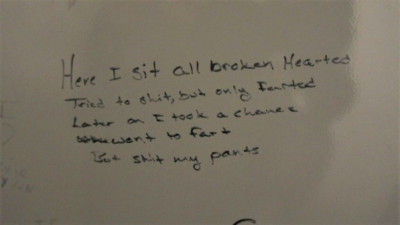 Here I sit all broken Hearted
Tried to shit, but only Farted
Later on I took a chance
went to fart
But shit my pants